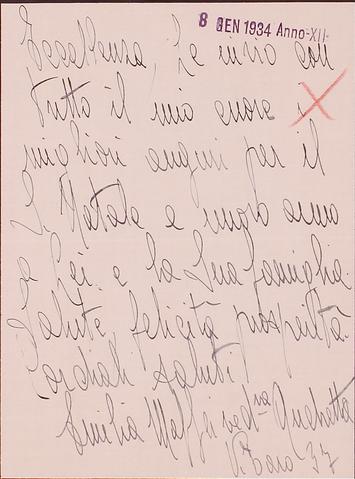 8 GEN 1934 Anno-XII-
Eccellenza, Le invio con
tutto il mio cuore i
migliori auguri per il
S. Natale e nuovo anno
a Lei e la Sua famiglia.
Salute, felicità prosperità.
Cordiali saluti
Emilia Maffei ved.va
37